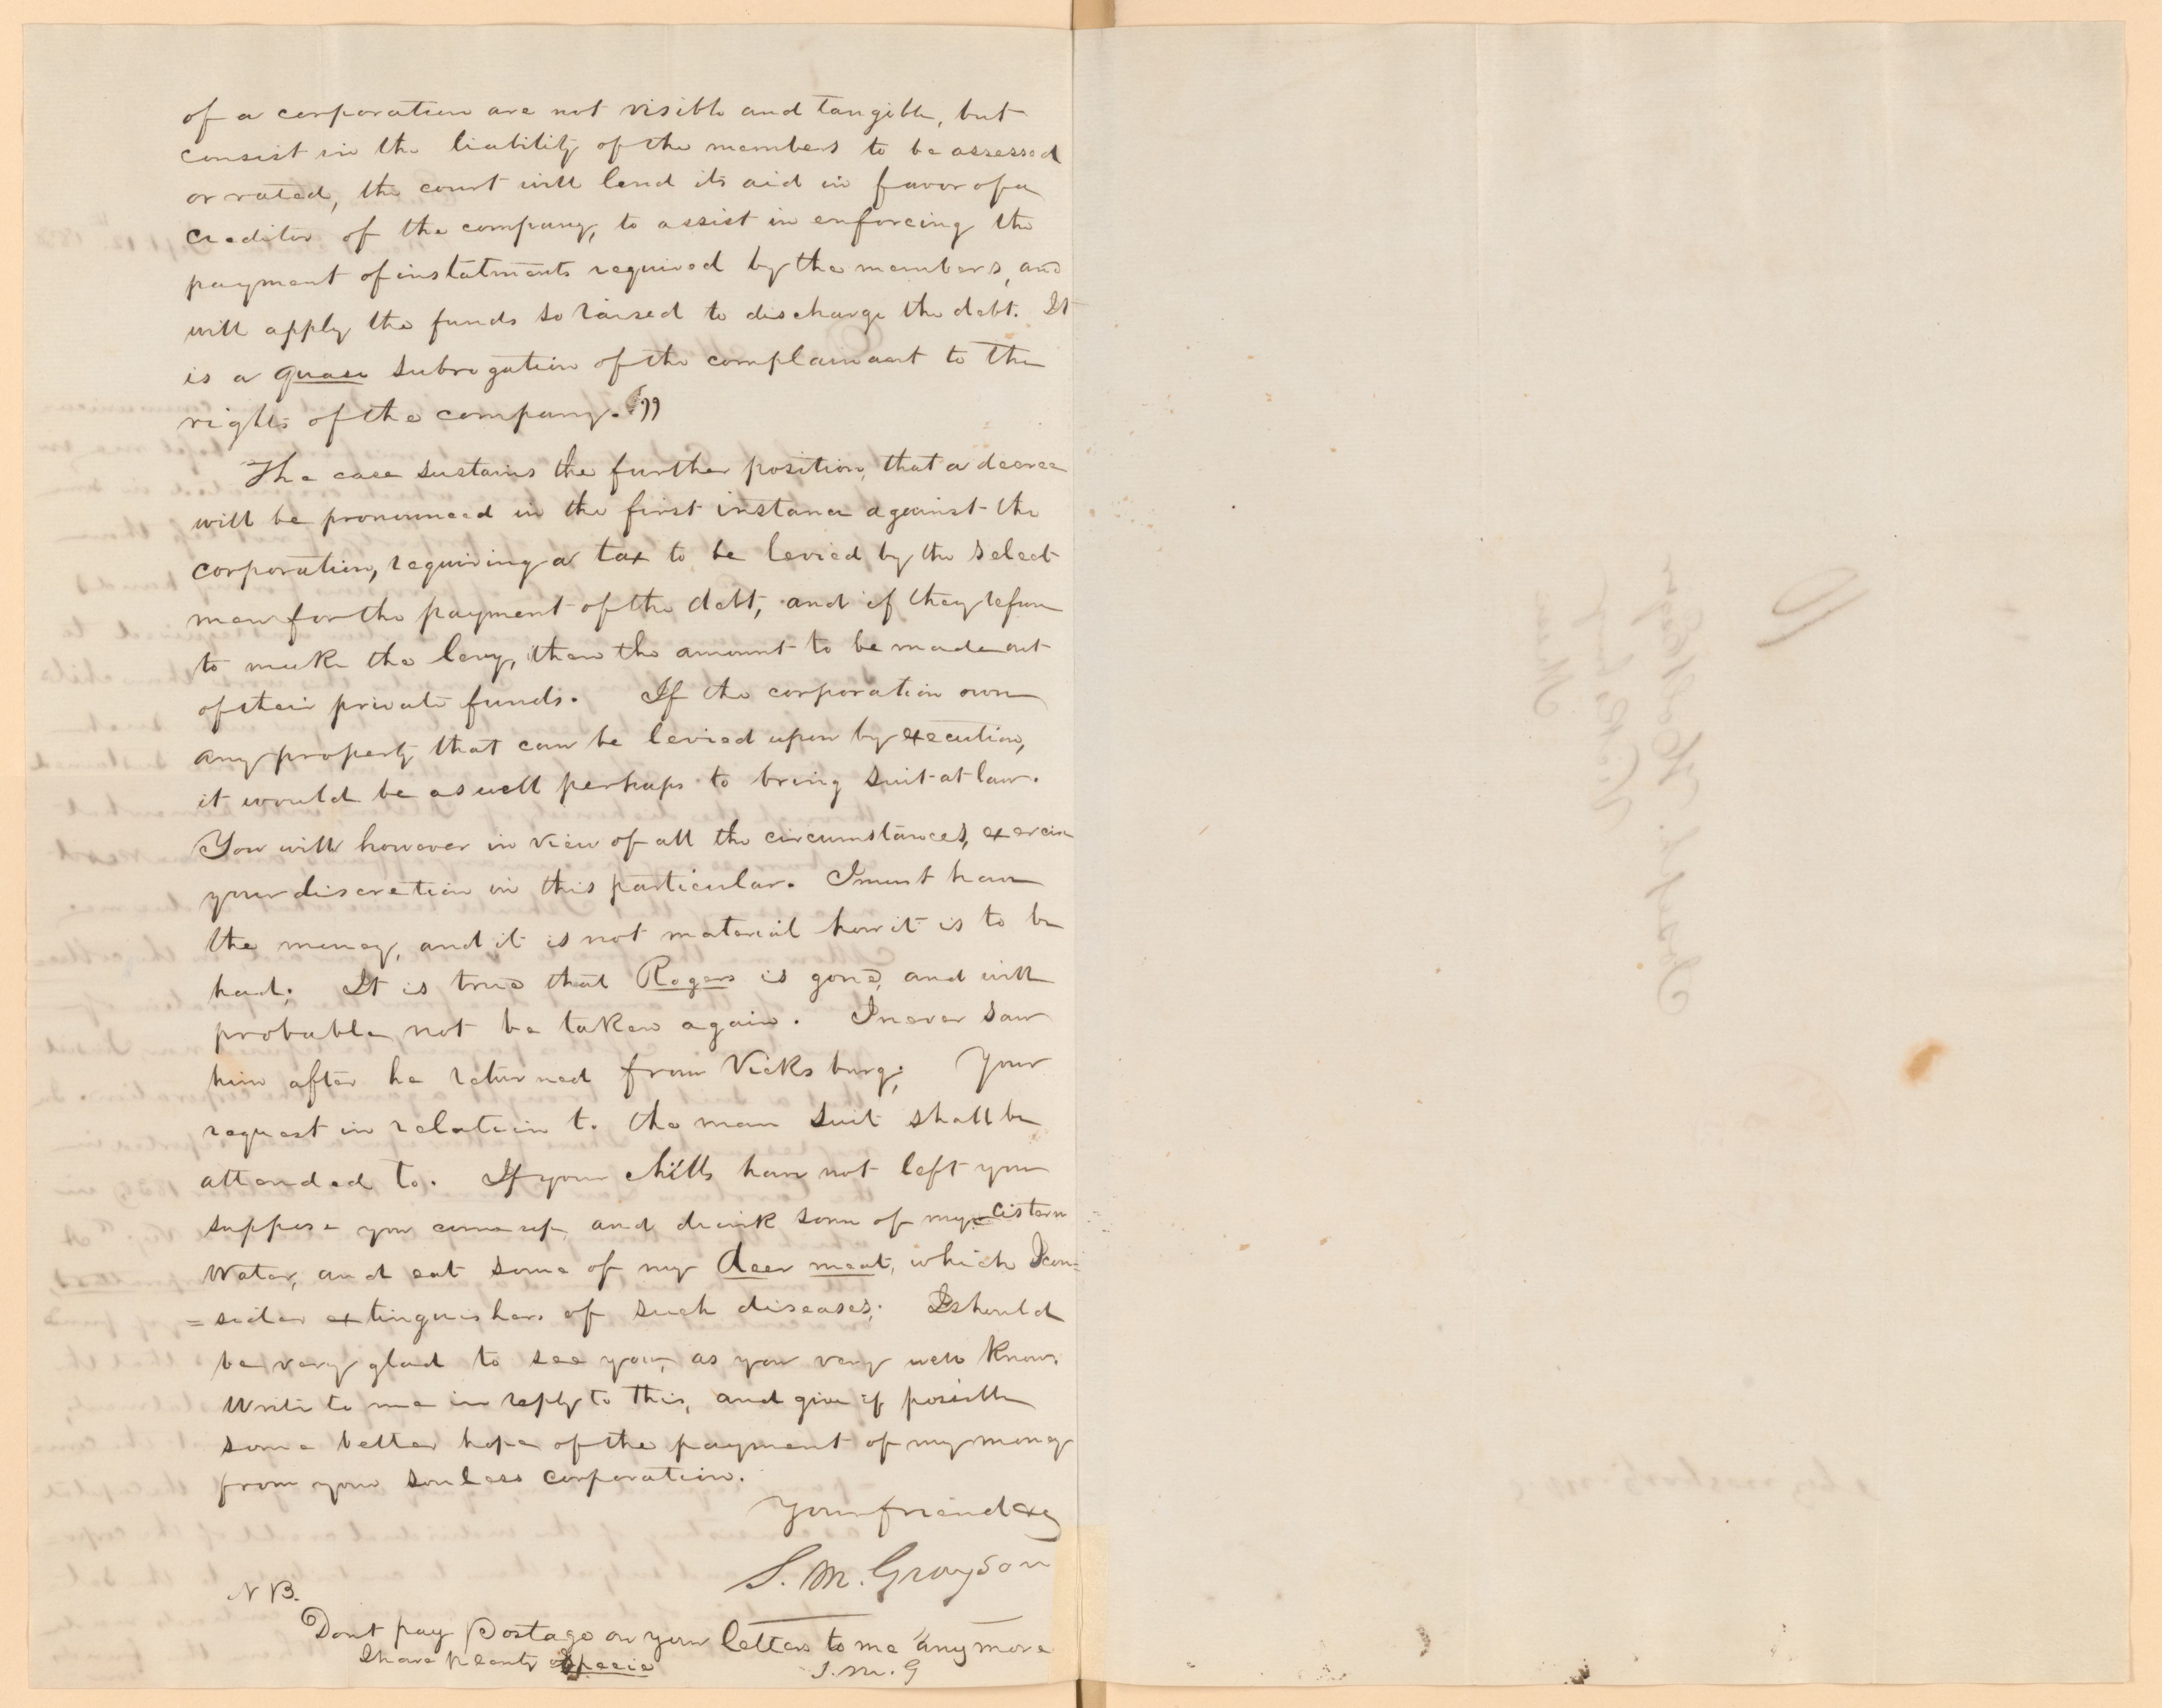 of a corporation are not visible and tangible, but
consist in the liability of the members to be assessed
or rated, the court will lend its aid in favor of a
creditor of the company, to assist in enforcing the
payment of instalments required by the members, and
will apply the funds so raised to discharge the debt. It
is a quasi subrogation of the complainant to the
rights of the company."
The case sustains the further position, that a decree
will be pronounced in the first instance against the
corporation, requiring a tax to be levied by the select
men for the payment of the debt, and if they refuse
to make the levy, then the amount to be made out
of their private funds. If the corporation own
any property that can be levied upon by execution,
it would be as well perhaps to bring suit at law.
You will however in view of all the circumstances, exercise
your discretion in this particular. I must have
the money, and it is not material how it is to be
had. It is true that Rogers is gone, and will
probable not be taken again. I never saw
him after he returned from Vicksburg. Your
request in relation to the man suit shall be
attended to. If your chills have not left you
suppose you come up and drink some of my cistern
water, and eat some of my deer meat, which I con=
=sider extinguishers of such diseases. I should
be very glad to see you, as you very well know.
Write to me in reply to this, and give if possible
some better hope of the payment of my money
from your souless corporation.
Your friend &c
S. M. Grayson
N B.
Dont pay Postage on your letters to me any more
I have plenty Specie
S. M. G